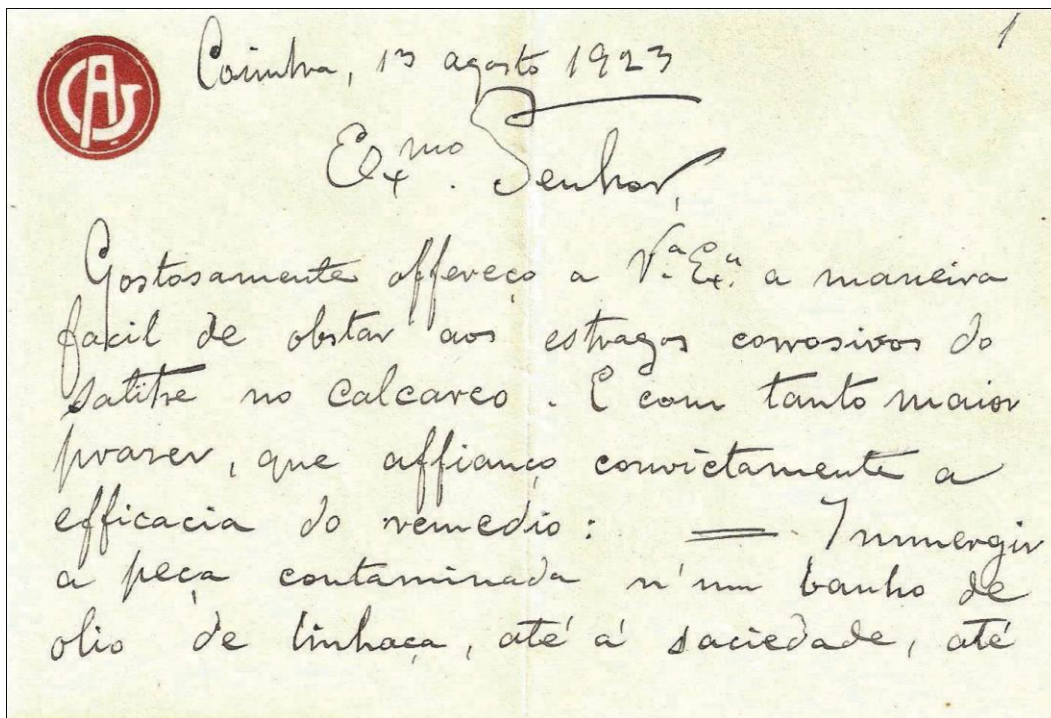 1
Coimbra, 13 agosto 1923
Ex.mo Senhor,
Gostosamente offereço a V.ª Ex.ª a maneira
facil de obstar aos estragos corrosivos do
salitre no calcareo. E com tanto maior
prazer, que affianço convictamente a
efficacia do remedio: = Immergir
a peça contaminada n'um banho de
olio de linhaça, até á saciedade, até